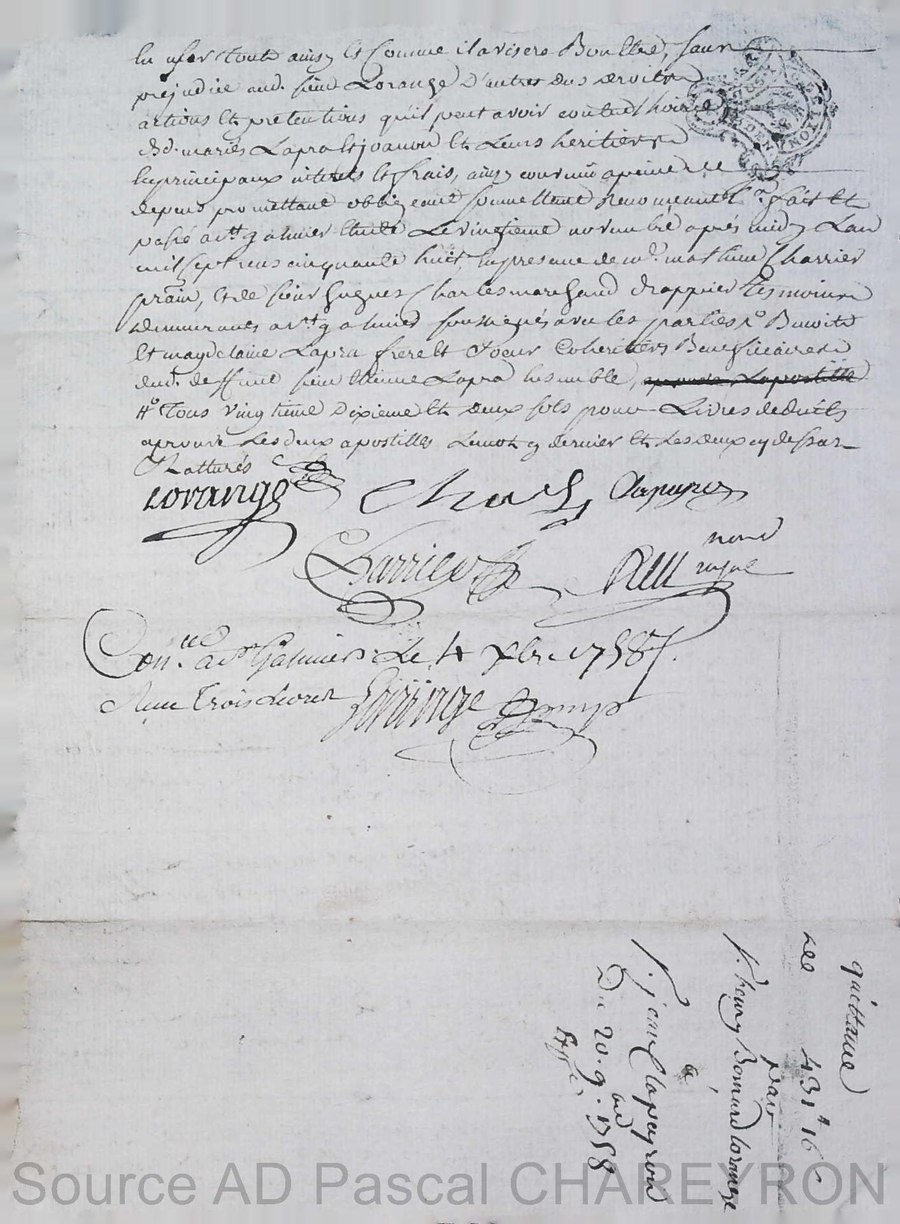 en user toute ainsy et comme il avisera Bon Etre, sauf
prejudice aud. sieur Lorange d'autres dus droits
actions et pretentions qu'il peut avoir contre
d. mariés Lapra et joanon et Leurs heritiers
en principaux interets et frais, ainsy convenu a peine de
depens promettant obligeant soumettant Renonceant &a. fait et
passé a st. galmier Etude Le vingtieme novembre aprés midy L'an
mil sept cens cinquante huit, en presence de me. mathieu Charrier
prain, et de sieur hugues Charles marchand drappier tesmoins
demeurants a st. galmier soussignés avec les parties
et magdelaine Lapra frere et soeur Coheritiers Beneficiaires
de sieur Etienne Lapra
Tous vingtieme dixieme et deux sols pour Livres deduits
aprouvé Les deux apostilles Le mot dernier et Les deux cy dessus
Ratturés
Lorange Charles Clapeyron
Charrier
nore
royal
Con.lé a st Galmier Le 4 Xbre 1758
Reçu Trois Livres
quittance
de 431# 16 s
par
s. henry Bonnard Lorange
a
s. jean Clapeyron
Du 20. 9bre 1758
Exp.
Source AD Pascal CHAREYRON